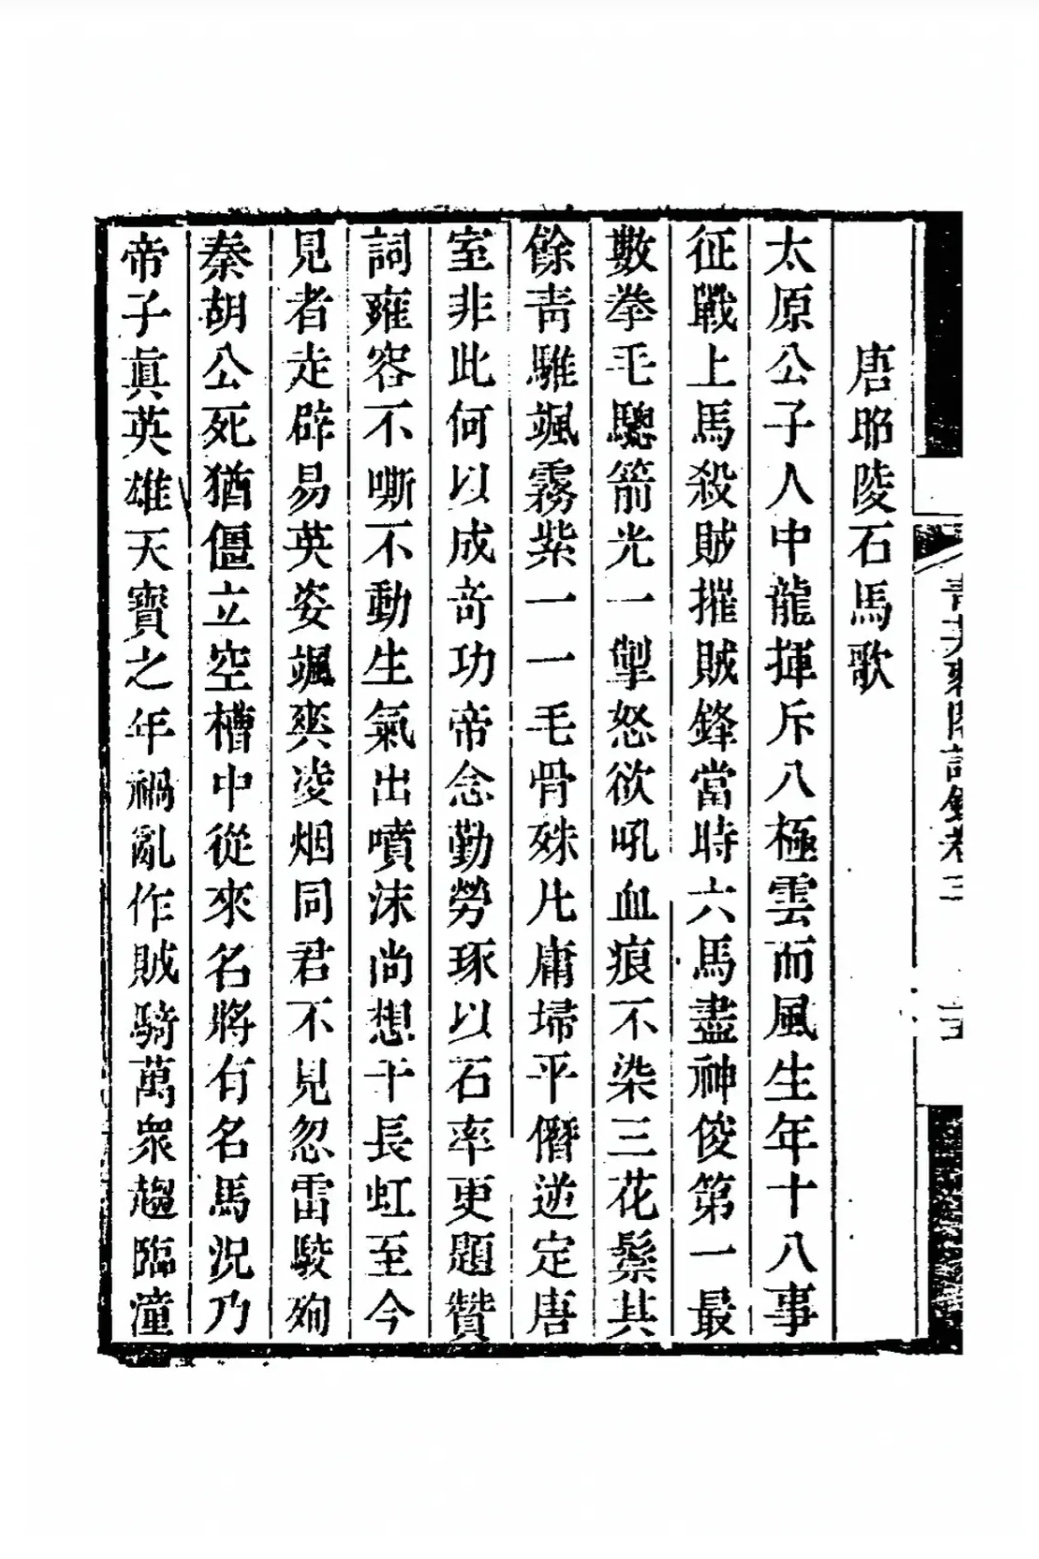 唐昭陵石馬歌
太原公子人中龍揮斥八極雲而風生年十八事
征戰上馬殺賊摧賊鋒當時六馬盡神俊第一最
數拳毛騘箭光一掣怒欲吼血痕不染三花鬃其
餘青騅颯霧紫一一毛骨殊凡庸埽平僭逆定唐
室非此何以成奇功帝念勤勞琢以石率更題贊
詞雍容不嘶不動生氣出噴沫尚想干長虹至今
見者走辟易英姿颯爽凌烟同君不見忽雷駮殉
秦胡公死猶僵立空槽中從來名將有名馬況乃
帝子真英雄天寶之年禍亂作賊騎萬衆趨臨潼